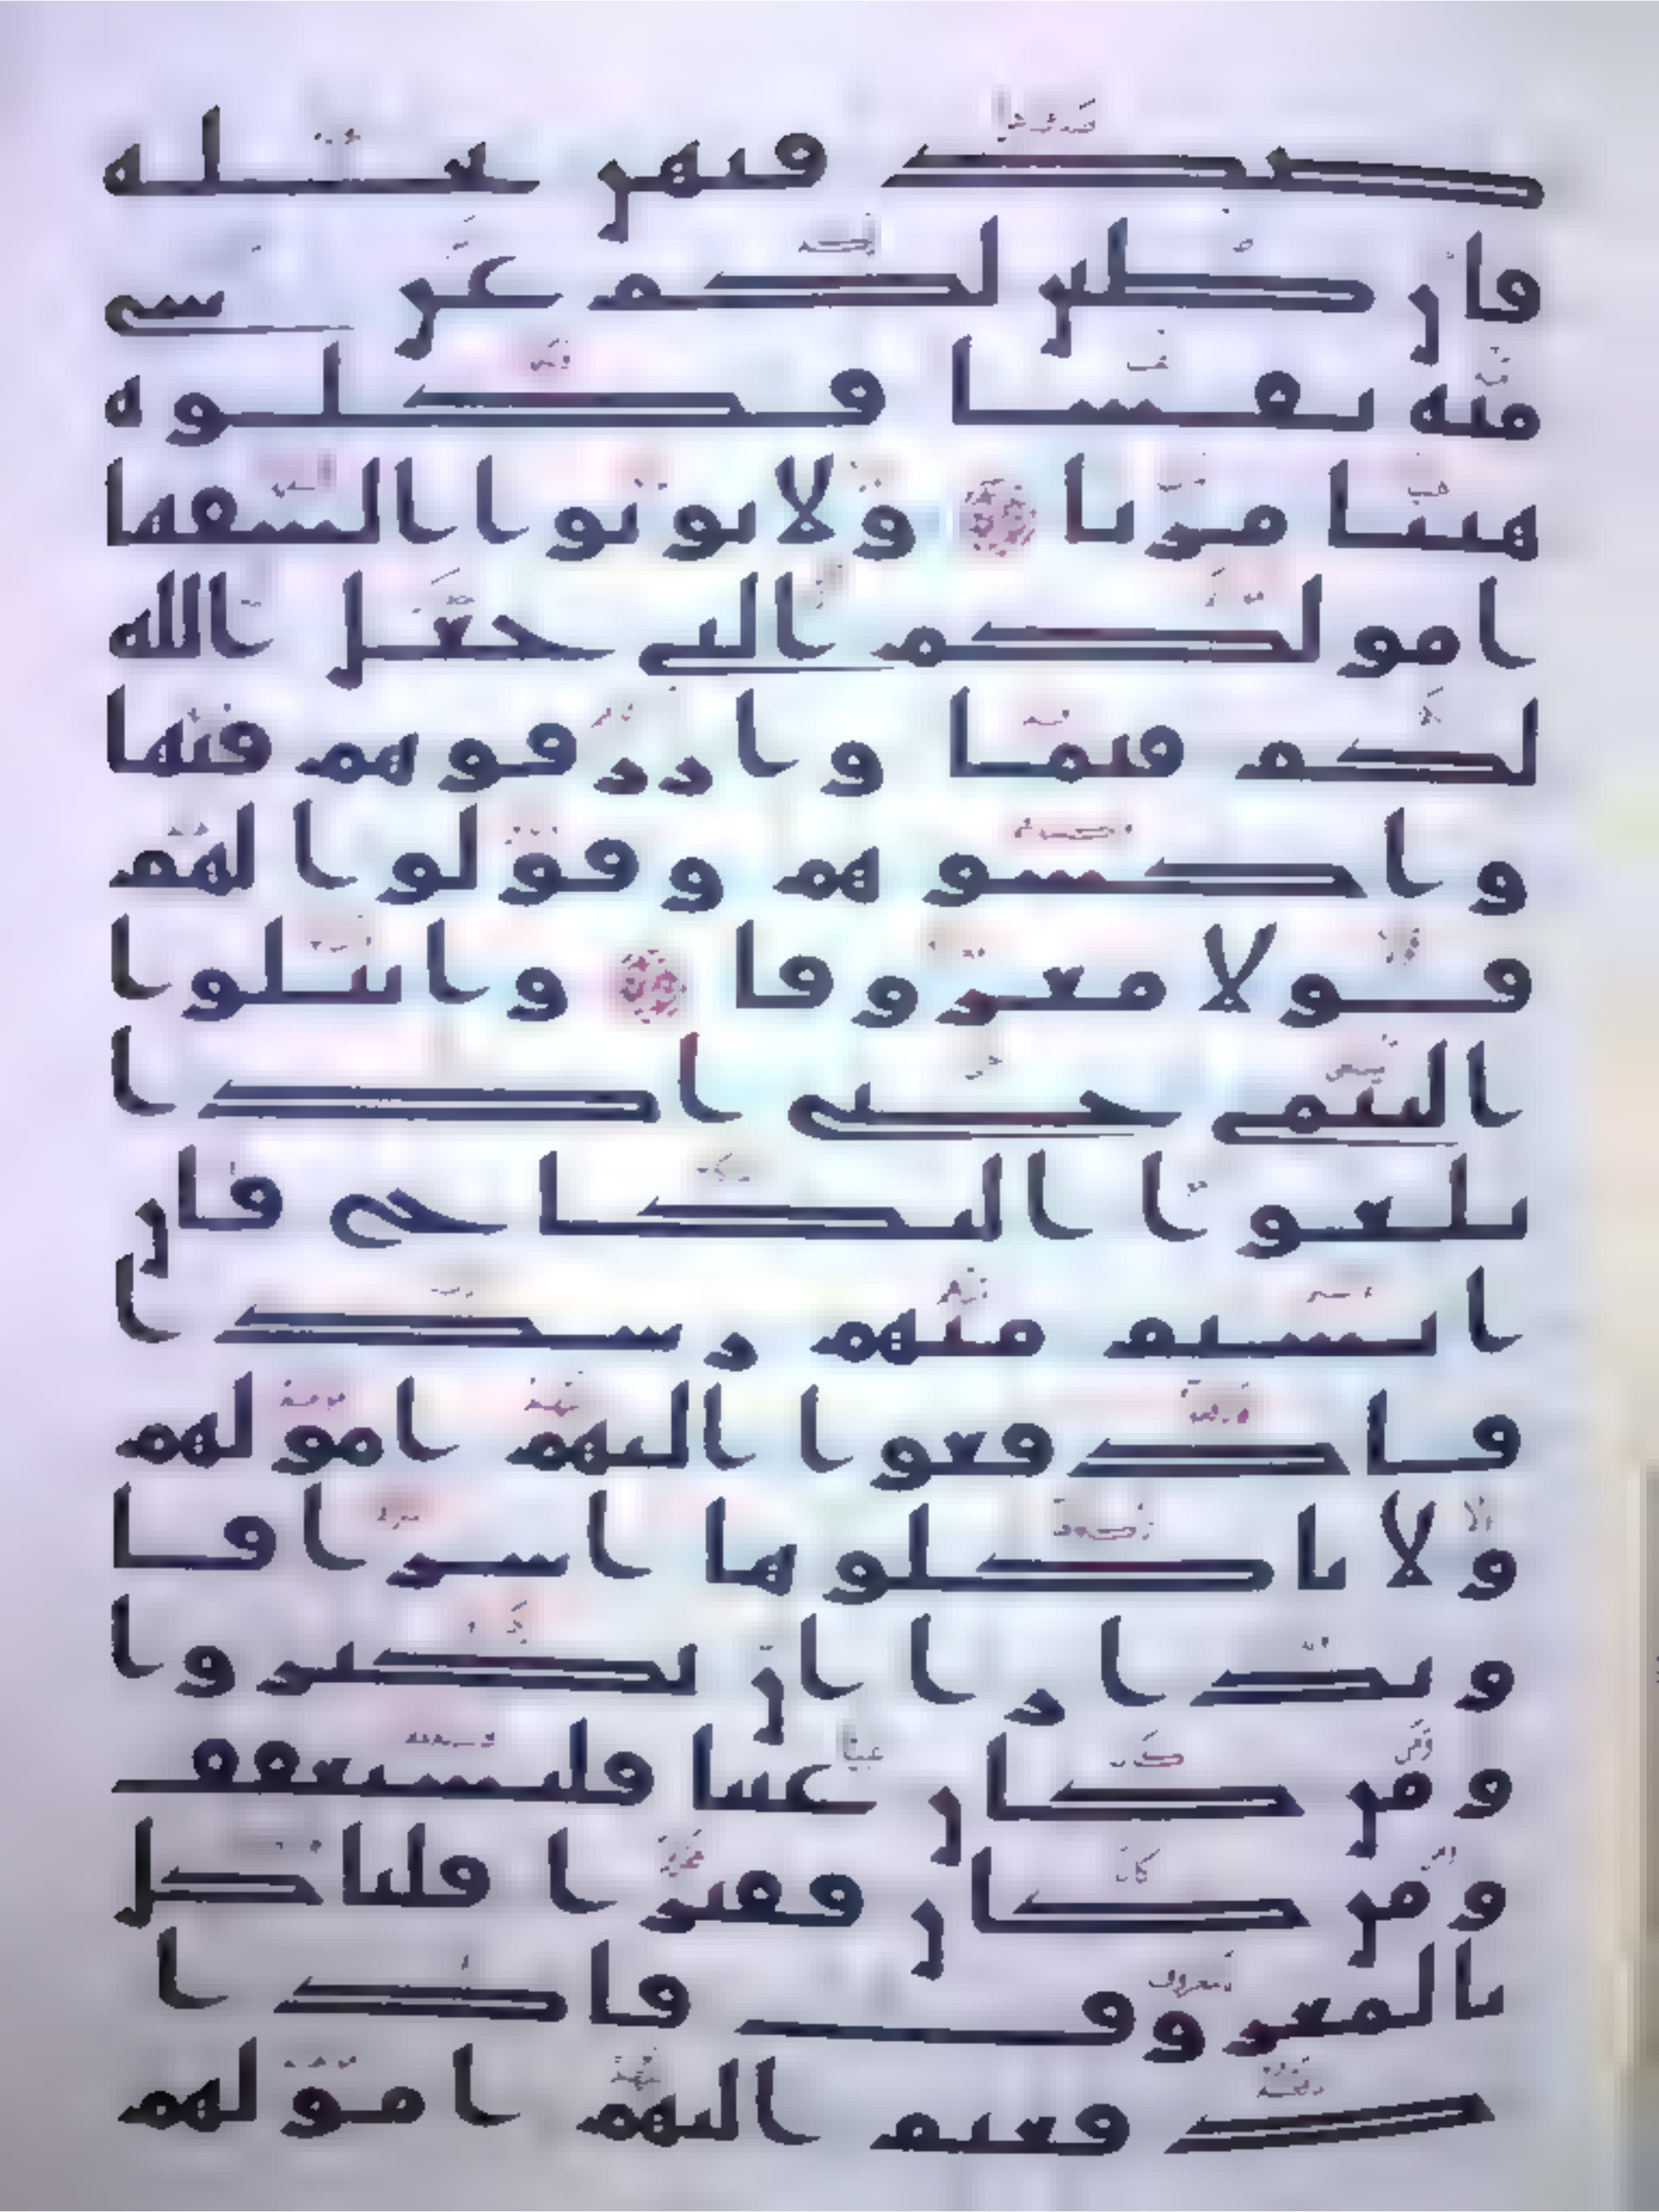 صدقتهن نحلة
فان طبن لكم عن شى
منه نفسا فكلوه
هنيا مريا ولا توتوا السفها
امولكم التى جعل الله
لكم قيما وارزقوهم فيها
واكسوهم وقولوا لهم
قولا معروفا وابتلوا
اليتمى حتى اذا
بلغوا النكاح فان
انستم منهم رشدا
فادفعوا اليهم امولهم
ولا تاكلوها اسرافا
وبدارا ان يكبروا
ومن كان غنيا فليستعفف
ومن كان فقيرا فلياكل
بالمعروف فاذا
دفعتم اليهم امولهم